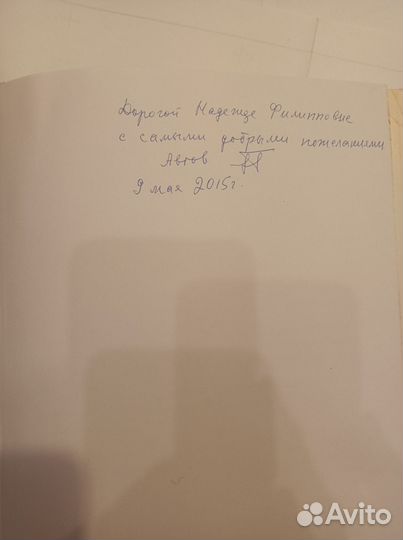 Дорогой Надежде Филипповне
с самыми добрыми пожеланиями
Автор
9 мая 2015г.
Avito